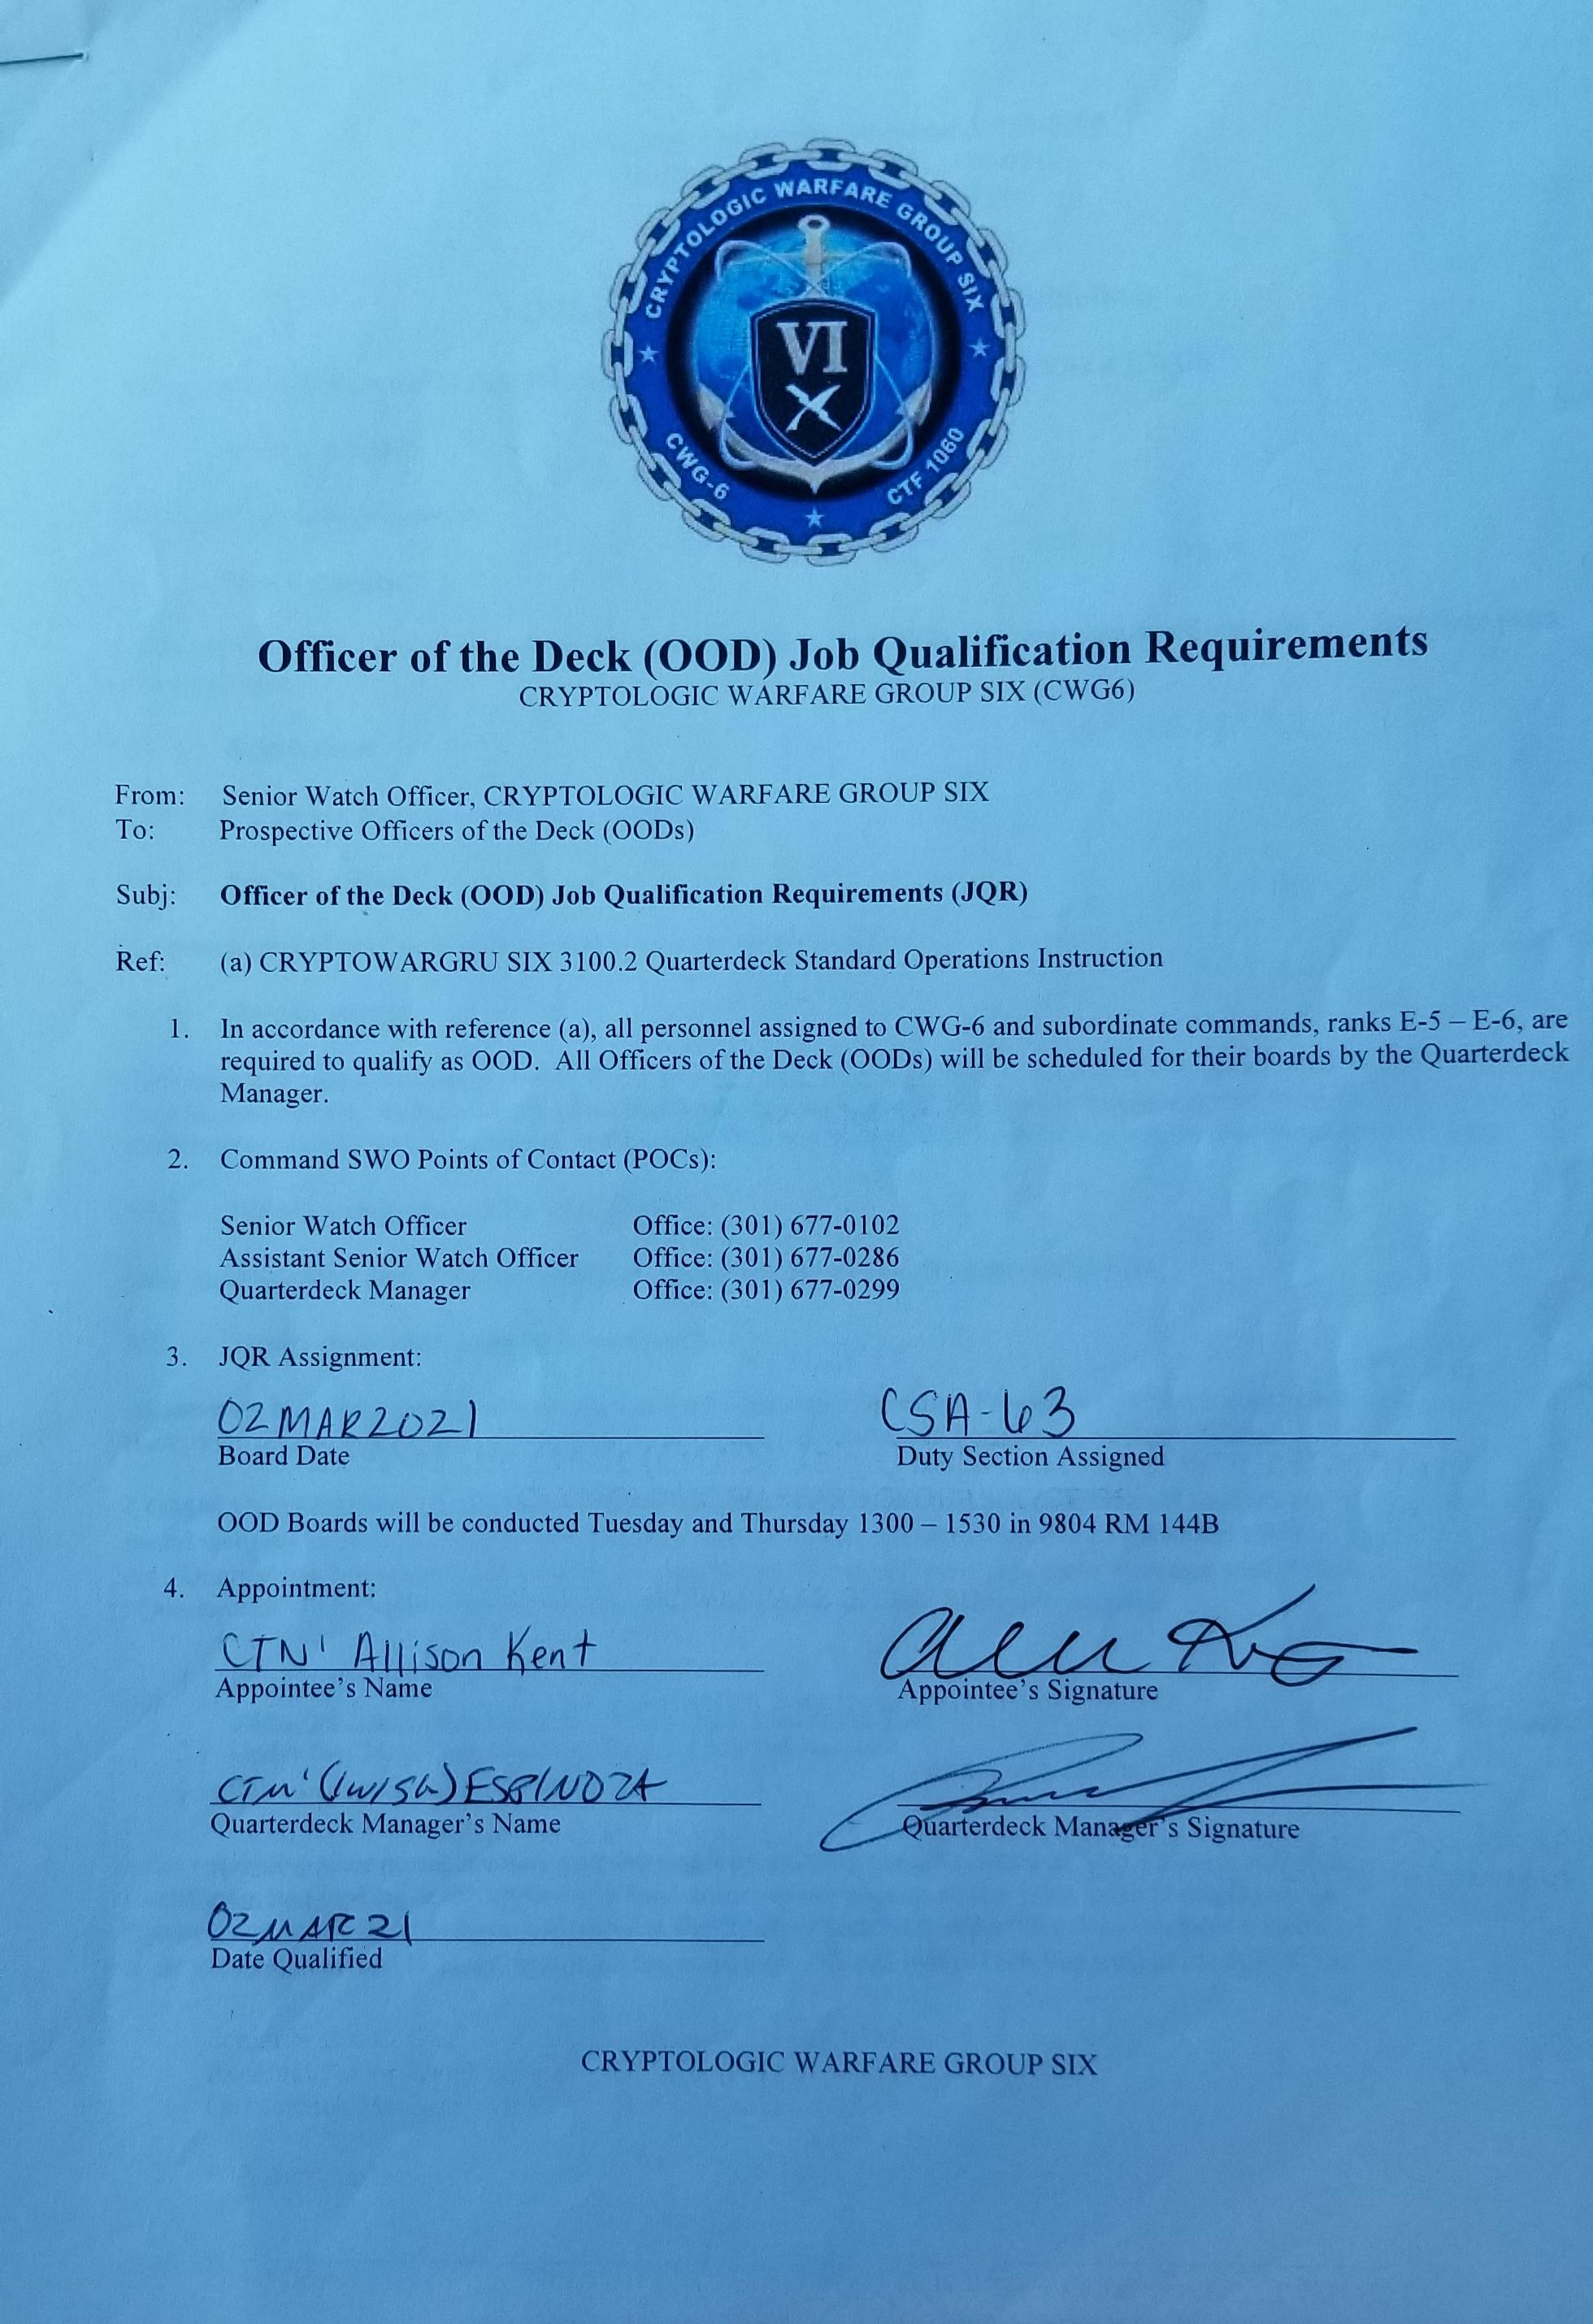 CRYPTOLOGIC WARFARE GROUP SIX
VI
CWG-6
CTF 1060
Officer of the Deck (OOD) Job Qualification Requirements
CRYPTOLOGIC WARFARE GROUP SIX (CWG6)
From: Senior Watch Officer, CRYPTOLOGIC WARFARE GROUP SIX
To: Prospective Officers of the Deck (OODs)
Subj: Officer of the Deck (OOD) Job Qualification Requirements (JQR)
Ref: (a) CRYPTOWARGRU SIX 3100.2 Quarterdeck Standard Operations Instruction
1. In accordance with reference (a), all personnel assigned to CWG-6 and subordinate commands, ranks E-5 – E-6, are
required to qualify as OOD. All Officers of the Deck (OODs) will be scheduled for their boards by the Quarterdeck
Manager.
2. Command SWO Points of Contact (POCs):
Senior Watch Officer Office: (301) 677-0102
Assistant Senior Watch Officer Office: (301) 677-0286
Quarterdeck Manager Office: (301) 677-0299
3. JQR Assignment:
02MAR2021 CSA-63
Board Date Duty Section Assigned
OOD Boards will be conducted Tuesday and Thursday 1300 – 1530 in 9804 RM 144B
4. Appointment:
CTN1 Allison Kent
Appointee's Name Appointee's Signature
ESPINOZA
Quarterdeck Manager's Name Quarterdeck Manager's Signature
02MAR21
Date Qualified
CRYPTOLOGIC WARFARE GROUP SIX